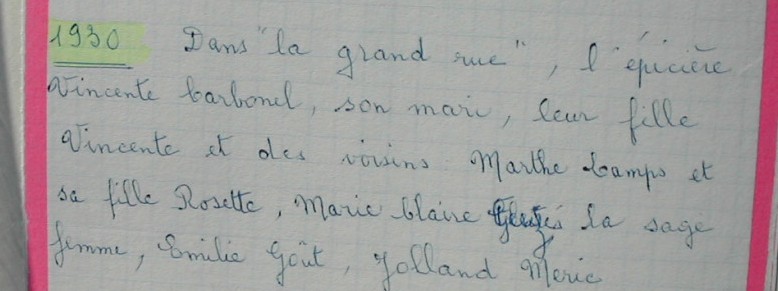 1930 Dans "la grand rue", l'épicière
Vincente Carbonel, son mari, leur fille
Vincente et des voisins Marthe Camps et
sa fille Rosette, Marie Claire la sage
femme, Emilie Goût, Jolland Meric